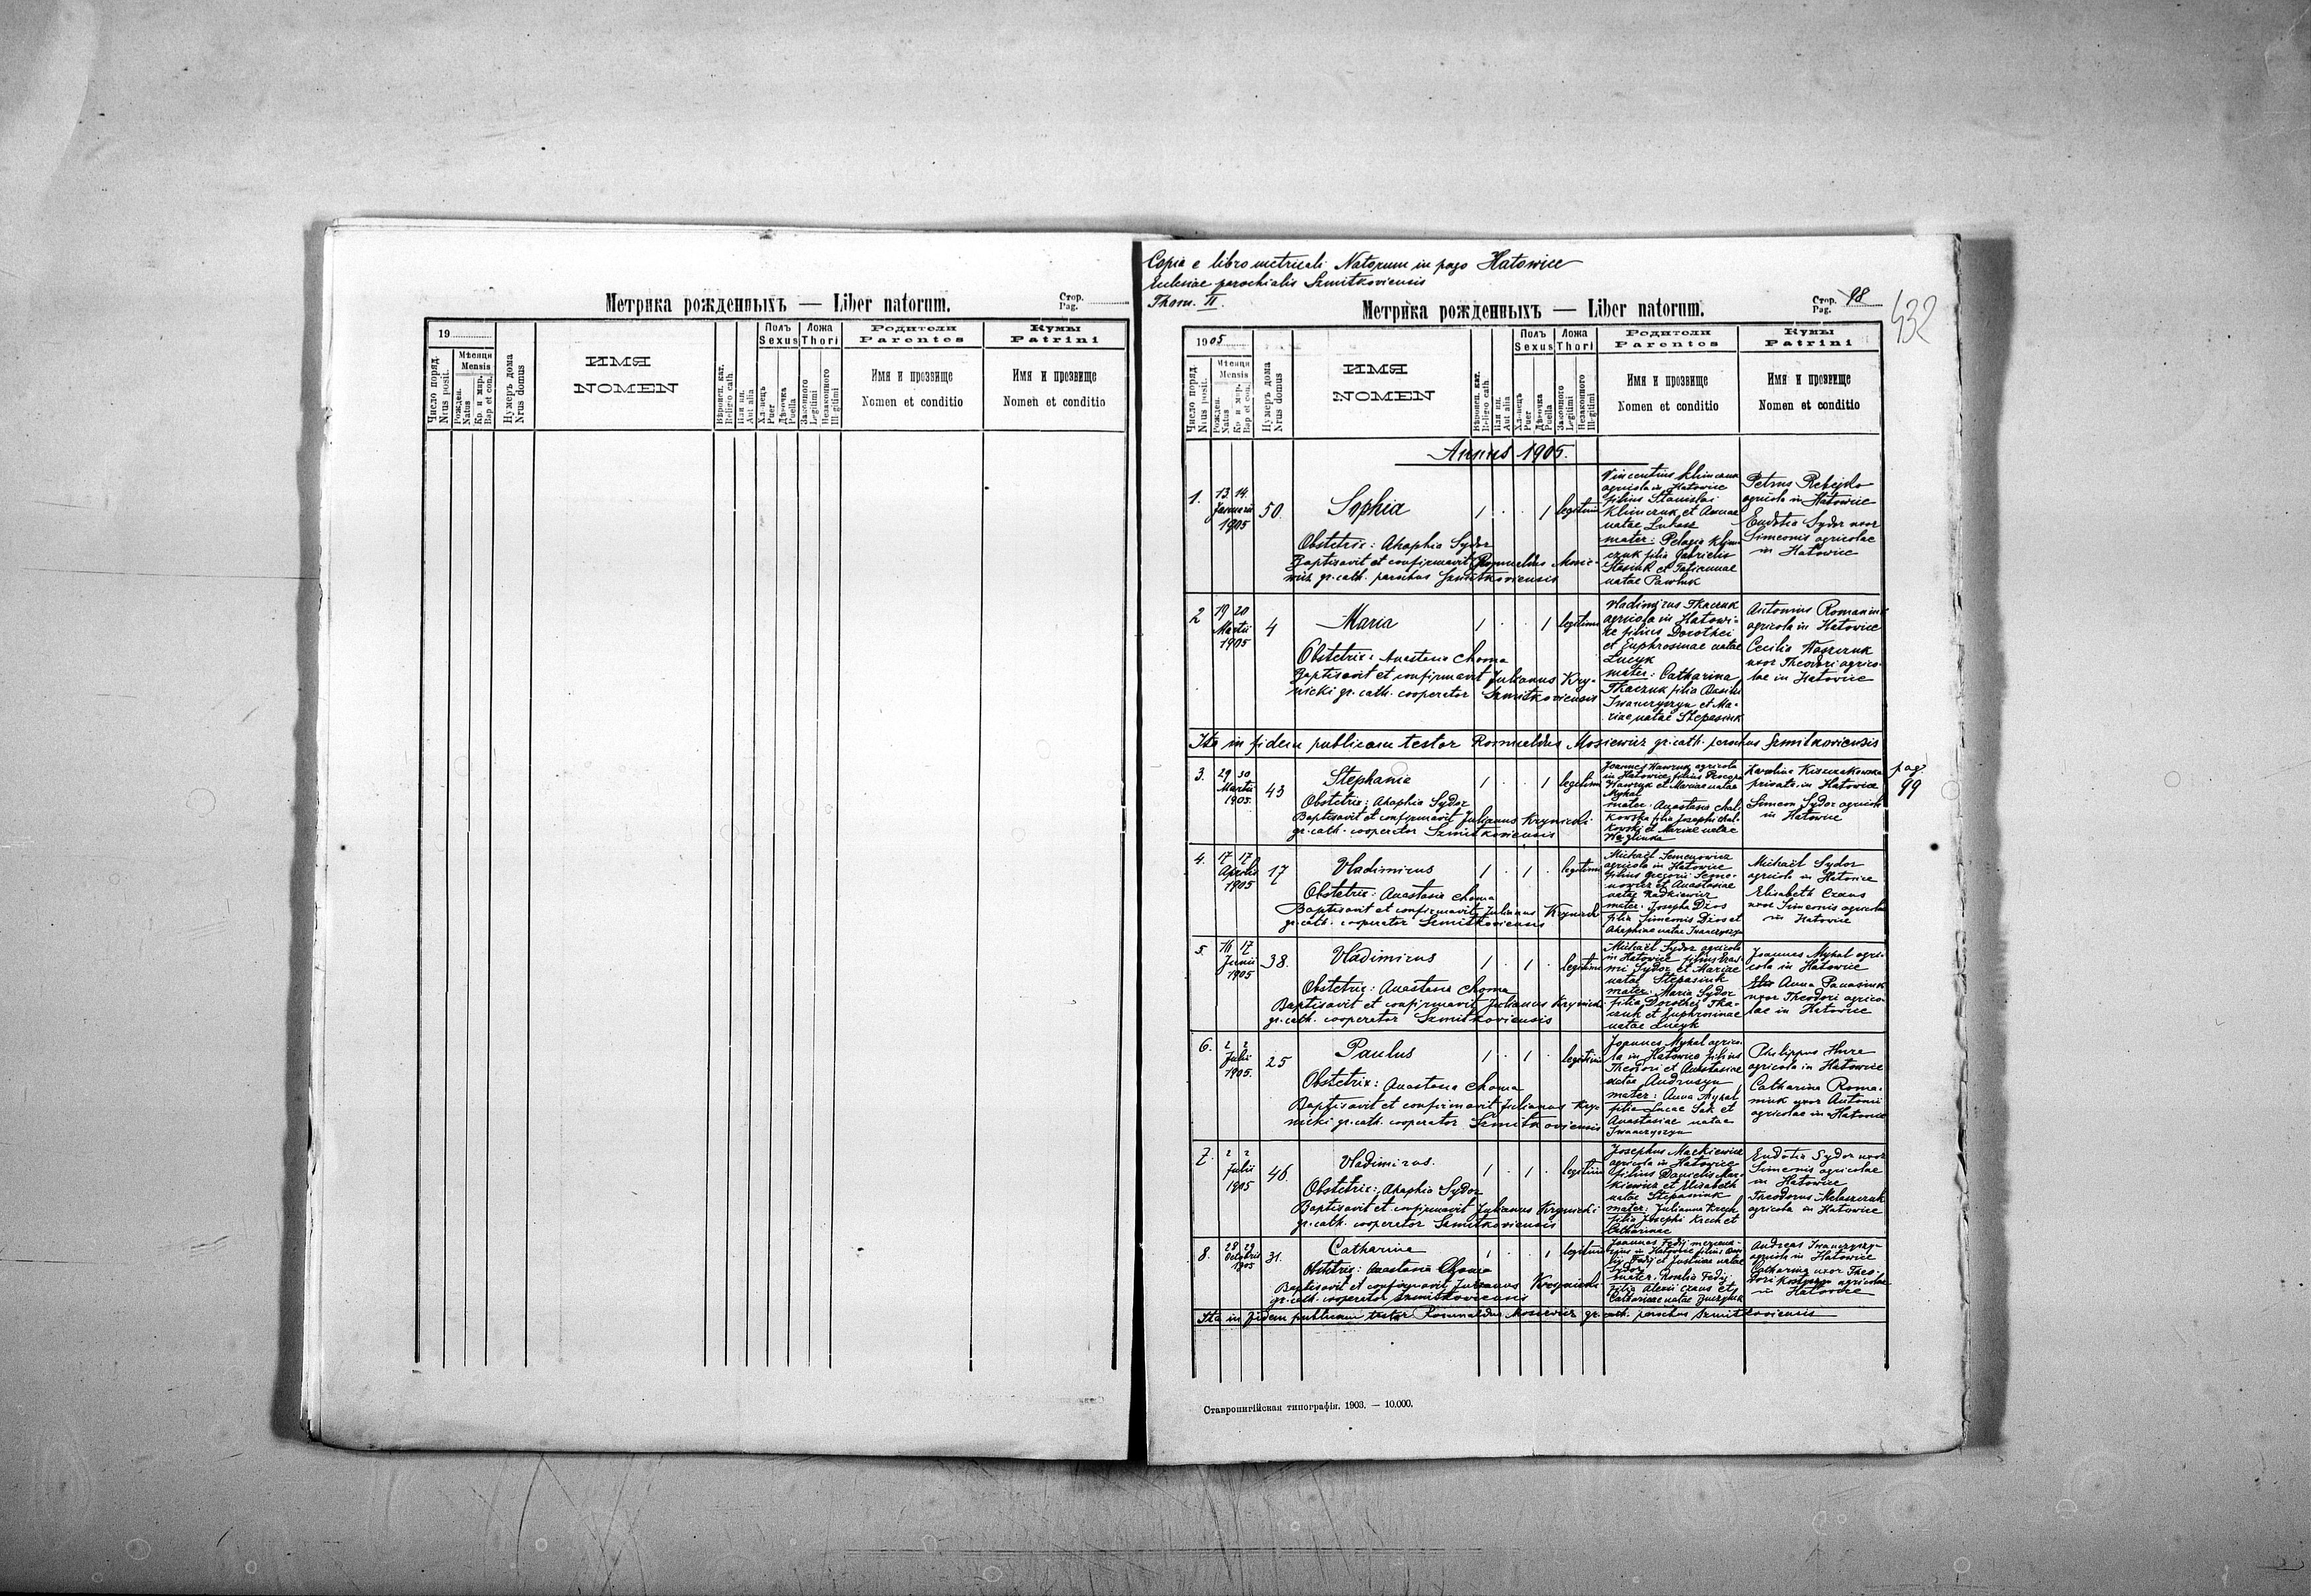 Метрика рожденныхъ — Liber natorum.
Стор.
Pag.
19
Число поряд.
Nrus posit.
Мѣсяця
Mensis
Рожден.
Natus
Кр. и мир.
Bap et con.
Нумеръ дома
Nrus domus
ИМЯ
NOMEN
Вѣроисп. кат.
Religio cath.
Или ин.
Aut alia
Полъ
Sexus
Хл-пецъ
Puer
Дѣвочка
Puella
Ложа
Thori
Законного
Legitimi
Незаконного
Illegitimi
Родители
Parentes
Имя и прозвище
Nomen et conditio
Кумы
Patrini
Имя и прозвище
Nomen et conditio
Copia e libro metricali Natorum in pago Hatowice
Eclesiae parochialis Szmitkoviensis
Thom. II.
Метрика рожденныхъ — Liber natorum.
Стор.
Pag. 98
432
1905
Число поряд.
Nrus posit.
Мѣсяця
Mensis
Рожден.
Natus
Кр. и мир.
Bap et con.
Нумеръ дома
Nrus domus
ИМЯ
NOMEN
Вѣроисп. кат.
Religio cath.
Или ин.
Aut alia
Полъ
Sexus
Хл-пецъ
Puer
Дѣвочка
Puella
Ложа
Thori
Законного
Legitimi
Незаконного
Illegitimi
Родители
Parentes
Имя и прозвище
Nomen et conditio
Кумы
Patrini
Имя и прозвище
Nomen et conditio
Annus 1905.
1.
13 14
Januarii
1905
50.
Sophia
Obstetrix: Ahaphia Sydor
Baptisavit et confirmavit Romualdus Mosie-
wicz gr. cath. parochus Szmitkoviensis
1 . . 1 legitimi
Vincentius Klimczuk
agricola in Hatowice
filius Stanislai
Klimczuk et Annae
natae Lukasz
mater: Pelagia Klym-
czuk filia Gabrielis
Stasiuk et Tatiannae
natae Pawluk
Petrus Rebejko
agricola in Hatowice
Eudotia Sydor uxor
Simeonis agricolae
in Hatowice
2
19 20
Martii
1905
4
Maria
Obstetrix: Anastasia Choma
Baptisavit et confirmavit Julianus Kry-
nicki gr. cath. cooperator Szmitkoviensis
1 . . 1 legitimi
Vladimirus Tkaczuk
agricola in Hatowi-
ce filius Dorothei
et Euphrosinae natae
Lucyk
mater: Catharina
Tkaczuk filia Basilii
Iwanczyszyn et Ma-
riae natae Stepasiuk
Antonius Romaniuk
agricola in Hatowice
Cecilia
uxor Theodori agrico-
lae in Hatowice
Ita in fidem publicam testor Romualdus Mosiewicz gr. cath. parochus Szmitkoviensis
3.
29 30
Martii
1905.
43
Stephania
Obstetrix: Ahaphia Sydor
Baptisavit et confirmavit Julianus Krynicki
gr. cath. cooperator Szmitkoviensis
1 . . 1 legitimi
Joannes Hawryk agricola
in Hatowice filius Procopii
Hawryk et Mariae natae
Mykal
mater: Anastasia Chal-
kowska filia Josephi Chal-
kowski et Mariae natae
Karolina Kiszczakowska
privata in Hatowice
Simeon Sydor agricola
in Hatowice
pag.
99
4.
17 17
Aprilis
1905
17
Vladimirus
Obstetrix: Anastasia Choma
Baptisavit et confirmavit Julianus Krynicki
gr. cath. cooperator Szmitkoviensis
1 . 1 . legitimi
Michaël Semenowicz
agricola in Hatowice
filius Gregorii Seme-
nowicz et Anastasiae
natae Radkiewicz
mater: Josepha Dios
filia Simeonis Dios et
Ahaphiae natae Iwanczyszyn
Michaël Sydor
agricola in Hatowice
Elisabeth Czaus
uxor Simeonis agricolae
in Hatowice
5.
16 17
Junii
1905
38.
Vladimirus
Obstetrix: Anastasia Choma
Baptisavit et confirmavit Julianus Krynicki
gr. cath. cooperator Szmitkoviensis
1 . 1 . legitimi
Michaël Sydor agricola
in Hatowice filius Eras-
mi Sydor et Mariae
natae Stepasiuk
mater: Maria Sydor
filia Dorothei Tka-
czuk et Euphrosinae
natae Lucyk
Joannes Mykal agri-
cola in Hatowice
Anna Panasiuk
uxor Theodori agrico-
lae in Hatowice
6.
2 2
Julii
1905.
25
Paulus
Obstetrix: Anastasia Choma
Baptisavit et confirmavit Julianus Kry-
nicki gr. cath. cooperator Szmitkoviensis
1 . 1 . legitimi
Joannes Mykal agrico-
la in Hatowice filius
Theodori et Anastasiae
natae Andrusyn
mater: Anna Mykal
filia Lucae Sak et
Anastasiae natae
Iwanczyszyn
Philippus Hure
agricola in Hatowice
Catharina Roma-
niuk uxor Antonii
agricolae in Hatowice
7.
2 2
Julii
1905
46.
Vladimirus.
Obstetrix: Ahaphia Sydor
Baptisavit et confirmavit Julianus Krynicki
gr. cath. cooperator Szmitkoviensis
1 . 1 . legitimi
Josephus Mackiewicz
agricola in Hatowice
filius Danielis Mac-
kiewicz et Elisabeth
natae Stepasiuk
mater: Julianna Krech
filia Josephi Krech et
Catharinae
Eudotia Sydor uxor
Simeonis agricolae
in Hatowice
Theodorus Melaszczuk
agricola in Hatowice
8.
28 29
Octobris
1905
31.
Catharina
Obstetrix: Anastasia Choma
Baptisavit et confirmavit Julianus Krynicki
gr. cath. cooperator Szmitkoviensis
1 . . 1 legitimi
Joannes Fedij mercena-
rius in Hatowice filius
Fedij et Justinae natae
Sydor
mater: Rosalia Fedij
filia Alexii Czaus et
Catharinae natae
Andreas Iwanczyszyn
agricola in Hatowice
Catharina uxor Theo-
dori agricolae
in Hatowice
Ita in fidem publicam testor Romualdus Mosiewicz gr. cath. parochus Szmitkoviensis
Ставропигійская типографія. 1903. — 10.000.